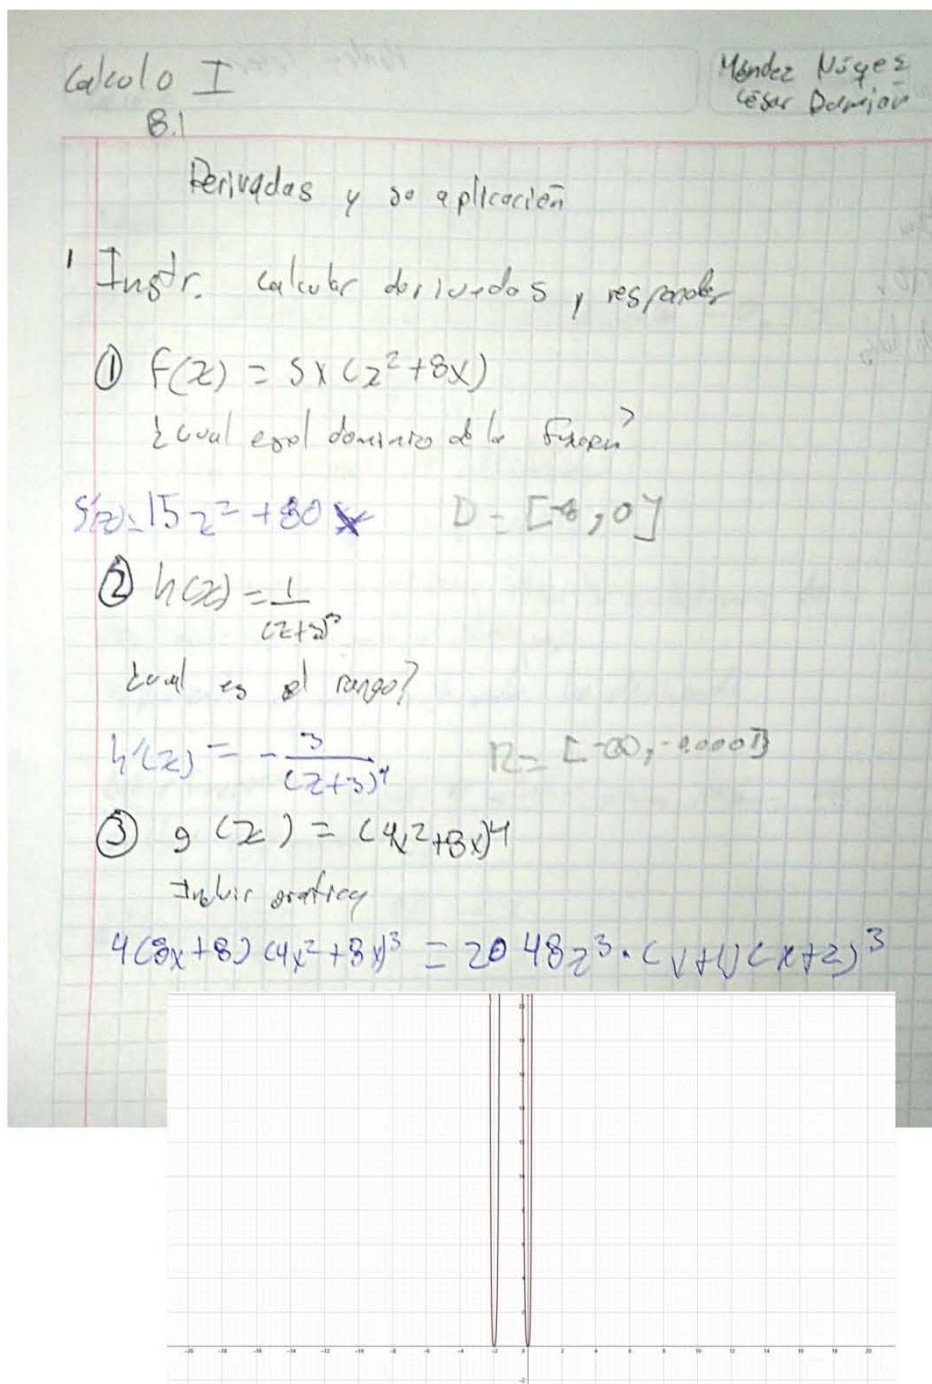 Calculo I
Méndez
César Damián
B.1
Derivadas y su aplicación
1 Instr. calcular derivadas y responder
① f(x) = 5x(x²+8x)
¿Cual es el dominio de la
f'(x)=15x²+80x D=[-8,0]
② h(x)=1/(x+3)³
¿cual es el rango?
h'(x) = -3/(x+3)⁴ R=[-∞,-0.0001]
③ g(x) = (4x²+8x)⁴
Incluir grafica
4(8x+8)(4x²+8x)³ = 2048x³·(x+1)(x+2)³